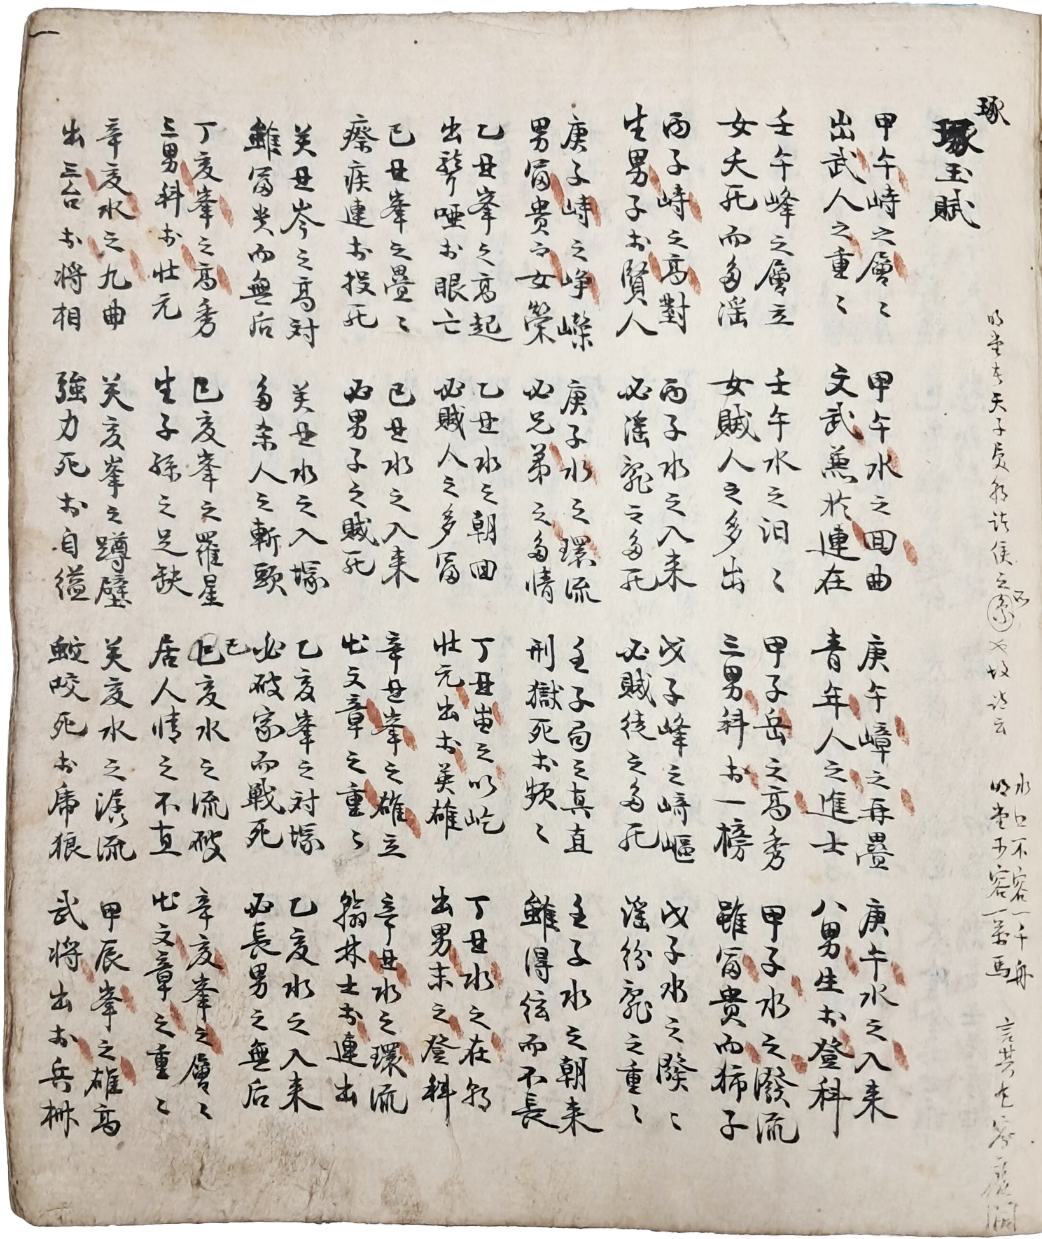 琢
琢玉賦
明堂者天子受朝諸侯之所也故詩云
水口不容一千舟
明堂可容一萬馬
言其宅容廣濶
甲午峙之層〻
出武人之重〻
甲午水之回曲
文武兼於連在
庚午嶂之再疊
青年人之進士
庚午水之入来
八男生於登科
壬午峰之層立
女夭死而多淫
壬午水之汨〻
女賊人之多出
甲子岳之高秀
三男科於一榜
甲子水之潑流
雖富貴而獨子
丙子峙之高對
生男子於賢人
丙子水之入来
必淫亂之多死
戊子峰之崎嶇
必賊徒之多死
戊子水之潑〻
淫紛亂之重〻
庚子峙之崢嶸
男富貴而女榮
庚子水之環流
必兄弟之多情
壬子局之真直
刑獄死於頻〻
壬子水之朝来
雖得位而不長
乙丑峯之高起
出聾啞於眼亡
乙丑水之朝回
必賊人之多富
丁丑之以屹
壯元出於英雄
丁丑水之在朝
出男末之登科
己丑峯之疊〻
瘵疾連於投死
己丑水之入来
必男子之賊死
辛丑峯之雄立
出文章之重〻
辛丑水之環流
翰林士於連出
癸丑岑之高対
雖富貴而無后
癸丑水之入塚
多余人之斬頸
乙亥峯之対塚
必破家而戰死
乙亥水之入来
必長男之無后
丁亥峯之高秀
三男科於壯元
己亥峯之羅星
生子孫之足缺
己亥水之流破
居人情之不直
辛亥峯之層〻
出文章之重〻
辛亥水之九曲
出三台於将相
癸亥峯之蹲壁
強力死於自縊
癸亥水之潺流
蛟咬死於虎狼
甲辰峯之雄高
武将出於兵柵